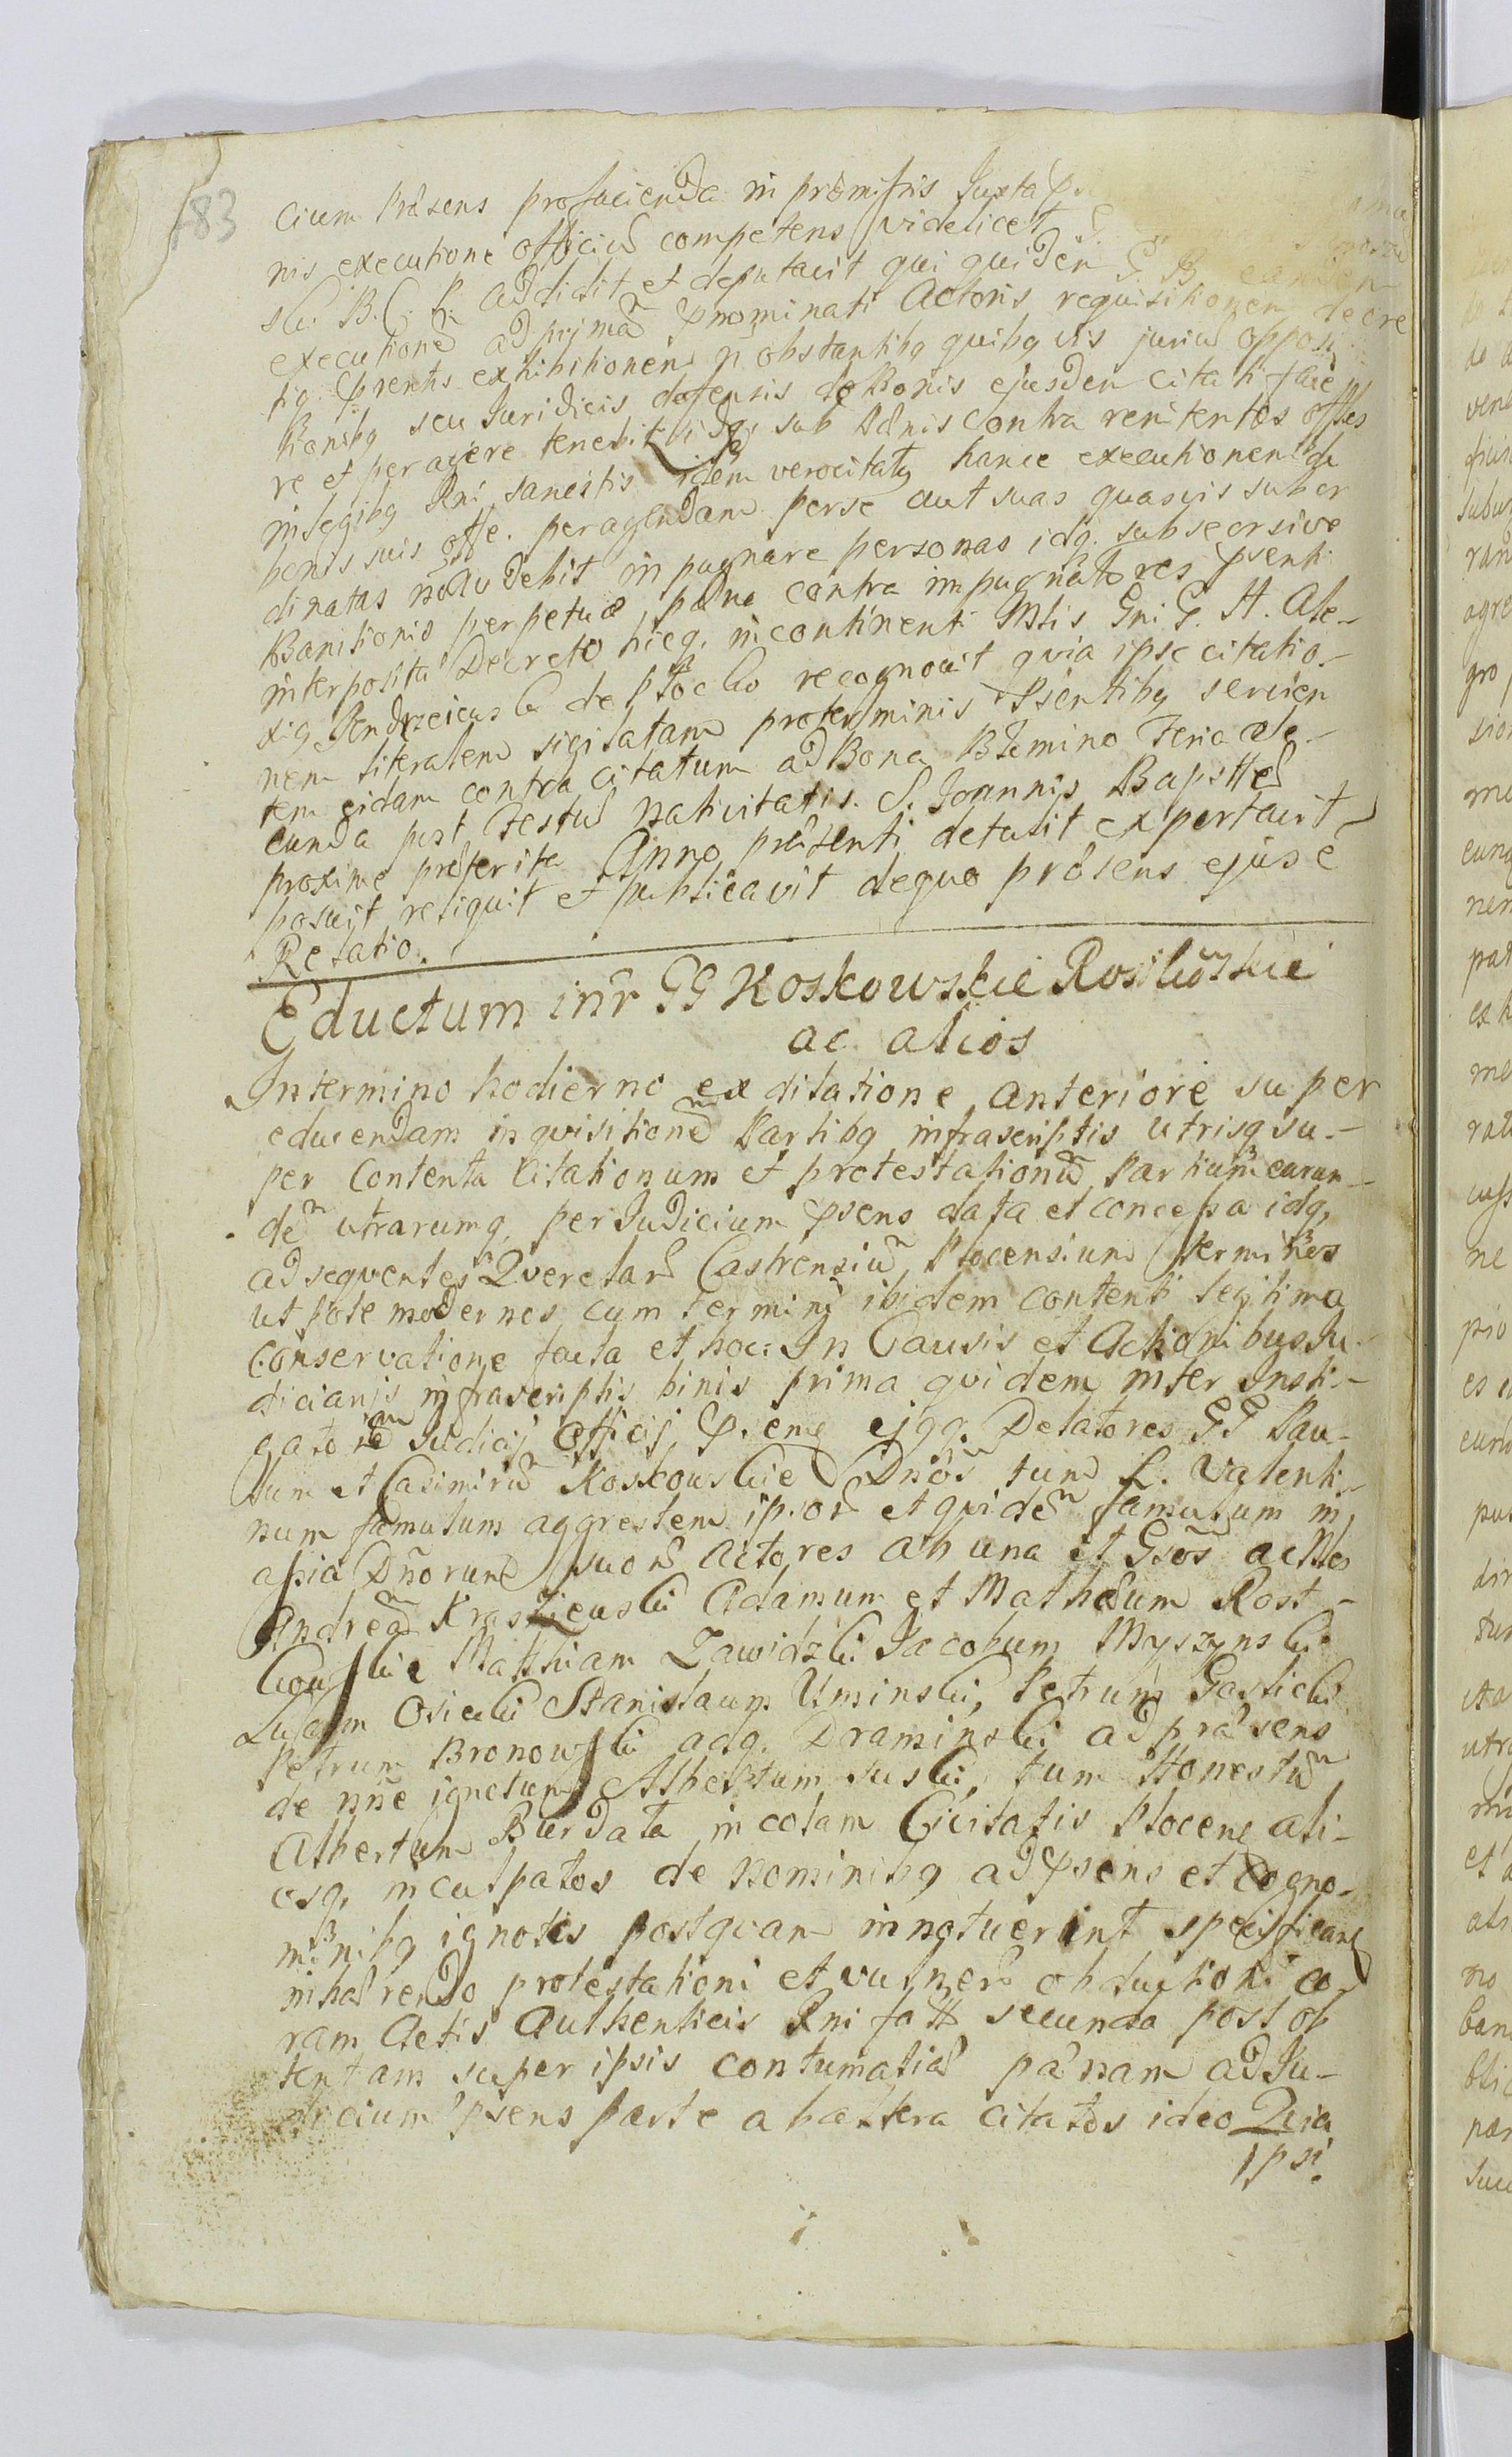 183
cium Præsens profacienda in præmissis Juxta
nis executione officiũ competens videlicet G.
ski B. C. P. addidit et deputavit qui quidem G B eandem
executionẽ ad primã pnominati Actoris requisitionem decre
tiq psentis exhibitionem ñ obstantibq quibqvis juriũ opposi
tionibq seu Juridicis defensis de Bonis ejusdem citati face
re et peragere tenebit idq sub pænis contra renitentes offles
in legibq Rni sancitis idem vero citatq hance executionem de
bonis suis offe. peragendam per se aut suas quasvis subor
dinatas non audebit inpugnare personas idq. sub seorsive
Banitionis perpetuæ pæna contra impugnatores psenti
interposita Decreto hicq. in continenti Mtis Gni G. H. Ale-
xiq Jendrzeiewski de Płocko recognovit quia ipse citatio-
nem literalem sigilatam pro terminis psentibq servien
tem eidam contra citatum ad Bona Blimino Feria Se-
cunda post Festũ nativitatis S. Joannis Baptæ
proxime præterita Anno præsenti detulit exportavit
posuit reliquit et publicavit de quo præsens ejus è
Relatio.
Eductum intr GG Koskowskie Rosiĉkowskie
ac alios
In termino hodierno ex dilatione anteriore super
educendam inquisitionẽ Partibq infrascriptis utrisq su-
per Contenta Citationum et protestationũ Partium earun-
dẽ utrarumq. per Judicium psens data et concessa idq.
ad sequentes Querelarũ Castrensiũ Plocensium terminos
utpote modernos cum terminj ibidem contenti legitima
Conservatione facta et hoc: In Causis et Actionibus Ju-
diciarijs infrascriptis binis prima quidem inter Insti-
gatorẽ Judicij Officij psenq ejqq. Delatores GG Pau-
lum et Casimirũ Koskowskie Dnõs tum L. Valenti-
num famulum aggrestem ipsorũ et quidẽ famulum in
asia Dñorum suorũ actores ab una et Gsõs ac Nles
Andreã Krasziewski Adamum et Mathæum Rost-
kowskie Mathiam Zawidzki Jacobum Myszynski
Lucam Osiecki Stanislaum Uminski, Petrum Gaslicki
Petrum Bronowski acq. Draminski ad præsens
de nñe ignotum Albertum Suski, tum Honestũ
Albertum Burdała incolam Civitatis Plocenq ali-
osq. inculpatos de nominibq ad psens et cogno-
minibq ignotis postquam innotuerint specificanq
inhærendo protestationi et vulnerũ obductioni co-
ram Actis Authenticis Rni fattæ secunda post ob
tentam super ipsis contumatiæ pænam ad Ju-
dicium psens parte ab altera citatos ideo Quia
ipsi